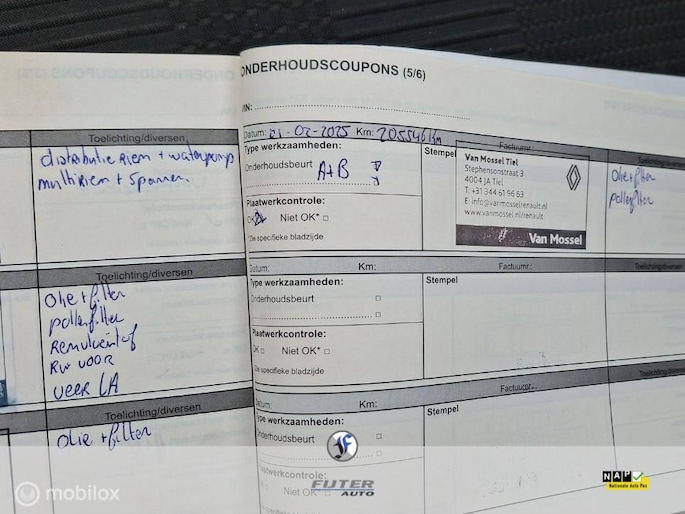 ONDERHOUDSCOUPONS (5/6)
VIN:
Toelichting/diversen
distributie Riem + waterpomp
multiRiem + Spanner.
Toelichting/diversen
Olie + filter
pollenfilter
Remvloeistof
RW VOOR
veer LA
Toelichting/diversen
Olie + filter
Datum: 21-02-2025 Km:
Type werkzaamheden:
Onderhoudsbeurt A+B
Plaatwerkcontrole:
OK Niet OK*
*Zie specifieke bladzijde
Factuurnr.:
Stempel
Van Mossel Tiel
Stephensonstraat 3
4004 JA Tiel
T: +31 344 61 96 63
E: info@vanmosselrenault.nl
www.vanmosselrenault.nl/renault
Van Mossel
Toelichting/diversen
Olie + filter
pollenfilter
Datum: Km: Factuurnr.:
Type werkzaamheden:
Onderhoudsbeurt
Plaatwerkcontrole:
OK Niet OK*
*Zie specifieke bladzijde
Stempel
Toelichting/diversen
Datum: Km: Factuurnr.:
Type werkzaamheden:
Onderhoudsbeurt
Niet OK*
Stempel
Toelichting/diversen
mobilox
F
FUTER
AUTO
NAP
Nationale Auto Pas